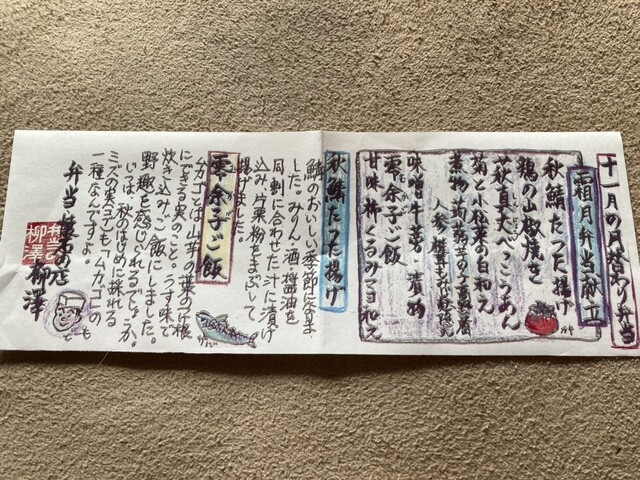 十一月の月替わり弁当
霜月弁当献立
秋鯖たつた揚げ
鶏の山椒焼き
萩真丈べっこうあん
菊と小松菜の白和え
煮物
人参
味噌牛蒡・漬物
零余子ご飯
甘味 柿くるみマヨ和え
柿
秋鯖たつた揚げ
鯖のおいしい季節になりま
した。みりん、酒、醤油を
同割に合わせた汁に漬け
込み、片栗粉をまぶして
揚げました。
サバ
零余子ご飯
ムカゴとは、山芋の葉の付根
にできる実のこと。うす味で
炊き込みご飯にしました。
野趣を感じられるでしょうか。
じつは、秋のはじめに採れる
ミズの実(コブ)も「ムカゴ」の
一種なんですよ。
弁当 惣菜の店 柳澤
柳澤